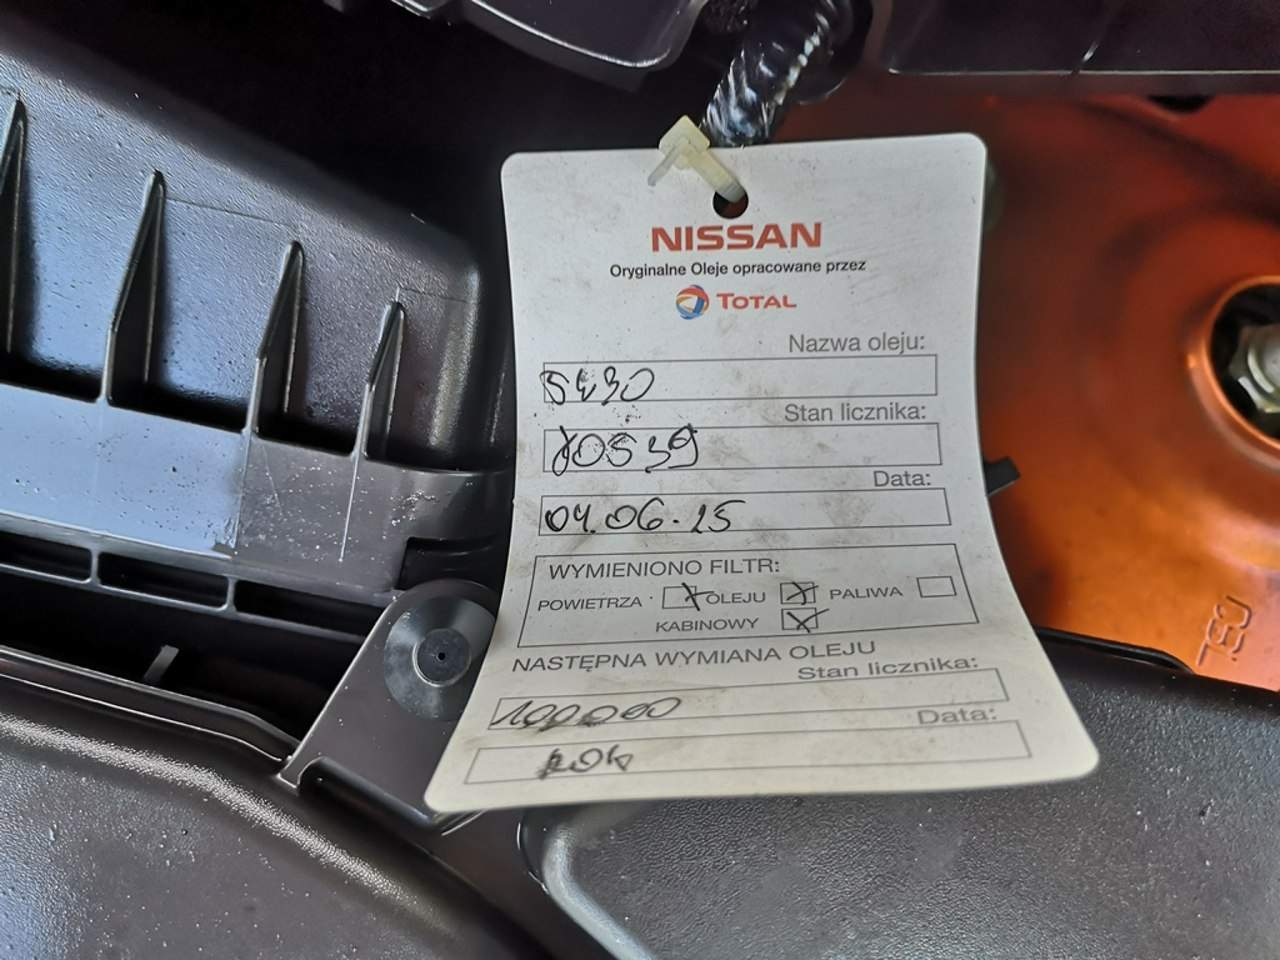 NISSAN
Oryginalne Oleje opracowane przez
TOTAL
Nazwa oleju:
5W30
Stan licznika:
80539
Data:
04.06.25
WYMIENIONO FILTR:
POWIETRZA X OLEJU X PALIWA
KABINOWY X
NASTĘPNA WYMIANA OLEJU
Stan licznika:
100000
Data:
rok